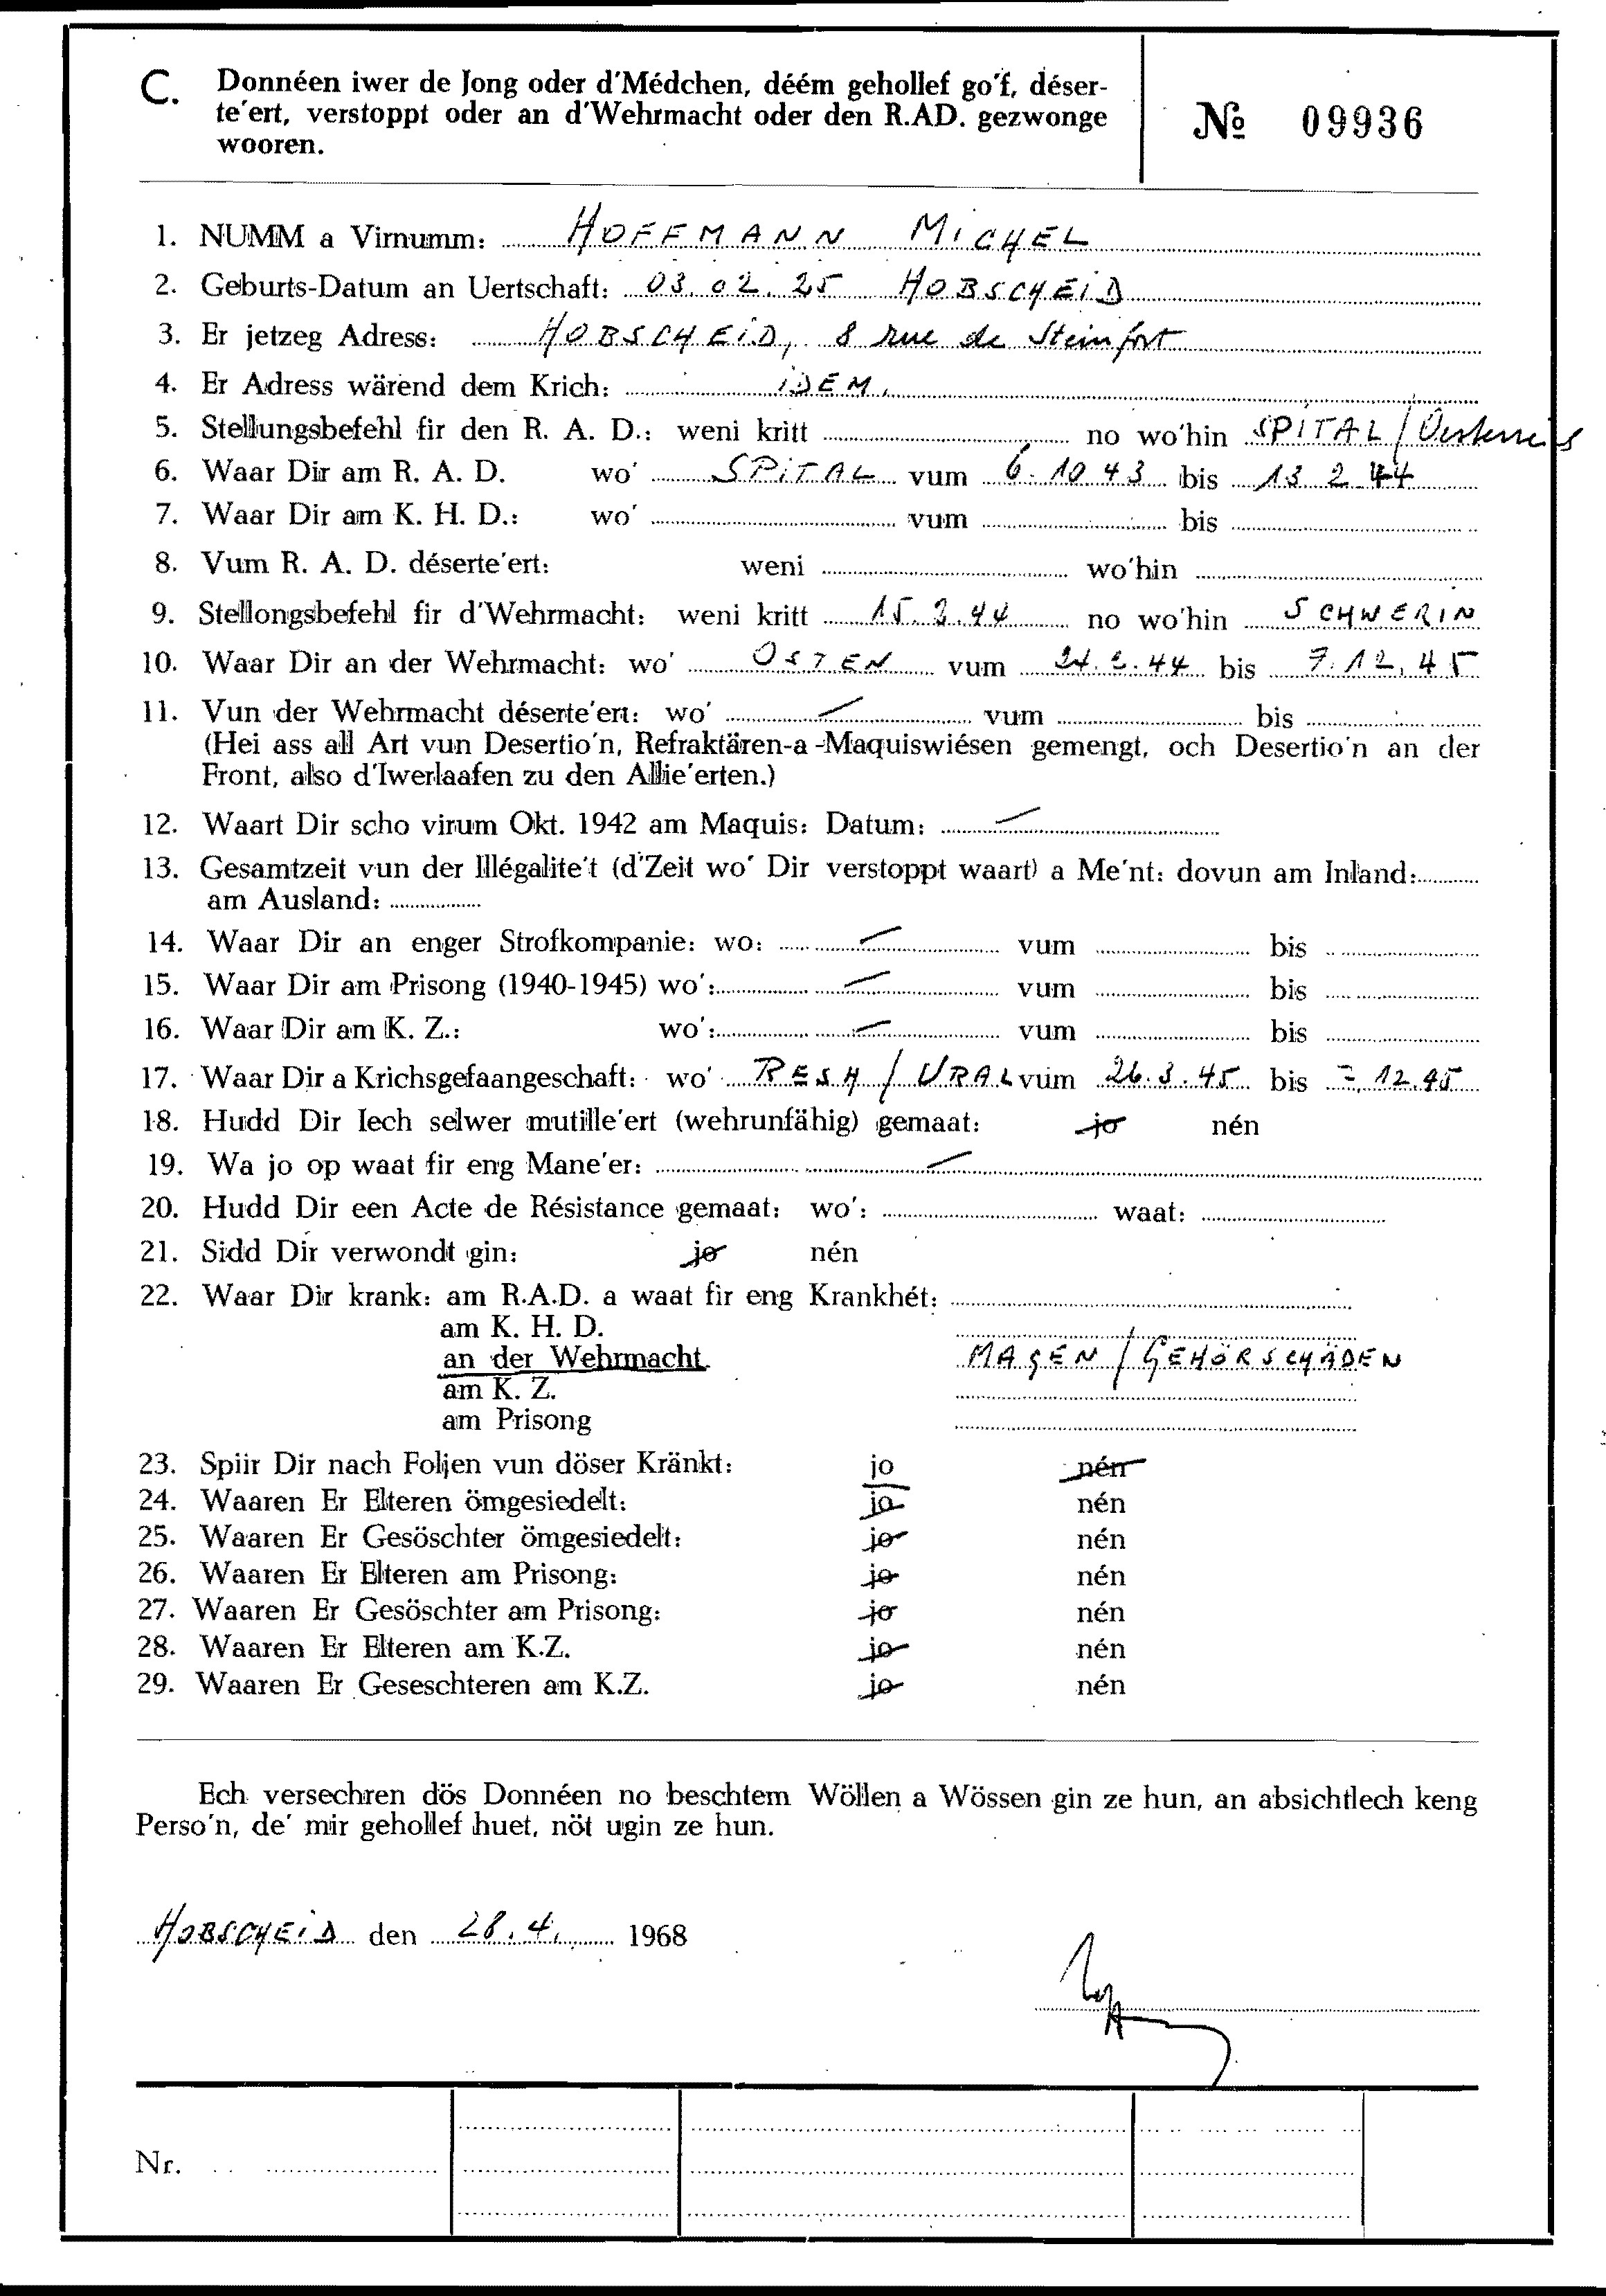 C. Donnéen iwer de Jong oder d'Médchen, déém gehollef go'f, déser-
te'ert, verstoppt oder an d'Wehrmacht oder den R.AD. gezwonge
wooren.
№ 09936
1. NUMM a Virnumm: HOFFMANN MICHEL
2. Geburts-Datum an Uertschaft: 03.02.25 HOBSCHEID
3. Er jetzeg Adress: HOBSCHEID, 8 rue de Steinfort
4. Er Adress wärend dem Krich: IDEM.
5. Stellungsbefehl fir den R. A. D.: weni kritt no wo'hin SPITAL /
6. Waar Dir am R. A. D. wo' SPITAL vum 6.10 43 bis 13 2 44
7. Waar Dir am K. H. D.: wo' vum bis
8. Vum R. A. D. déserte'ert: weni wo'hin
9. Stellongsbefehl fir d'Wehrmacht: weni kritt no wo'hin SCHWERIN
10. Waar Dir an der Wehrmacht: wo' OSTEN vum 24.2.44 bis 7.12.45
11. Vun der Wehrmacht déserte'ert: wo' — vum bis
(Hei ass all Art vun Desertio'n, Refraktären-a-Maquiswiésen gemengt, och Desertio'n an der
Front, also d'Iwerlaafen zu den Allie'erten.)
12. Waart Dir scho virum Okt. 1942 am Maquis: Datum: —
13. Gesamtzeit vun der Illégalite't (d'Zeit wo' Dir verstoppt waart) a Me'nt: dovun am Inland:
am Ausland:
14. Waar Dir an enger Strofkompanie: wo: — vum bis
15. Waar Dir am Prisong (1940-1945) wo': — vum bis
16. Waar Dir am K. Z.: wo': — vum bis
17. Waar Dir a Krichsgefaangeschaft: wo' RESH / URAL vum 26.3.45 bis 12.45
18. Hudd Dir Iech selwer mutille'ert (wehrunfähig) gemaat: jo nén
19. Wa jo op waat fir eng Mane'er: —
20. Hudd Dir een Acte de Résistance gemaat: wo': waat:
21. Sidd Dir verwondt gin: jo nén
22. Waar Dir krank: am R.A.D. a waat fir eng Krankhét:
am K. H. D.
an der Wehrmacht MAGEN / GEHÖRSCHÄDEN
am K. Z.
am Prisong
23. Spiir Dir nach Foljen vun döser Kränkt: jo nén
24. Waaren Er Elteren ömgesiedelt: jo nén
25. Waaren Er Gesöschter ömgesiedelt: jo nén
26. Waaren Er Elteren am Prisong: jo nén
27. Waaren Er Gesöschter am Prisong: jo nén
28. Waaren Er Elteren am K.Z. jo nén
29. Waaren Er Geseschteren am K.Z. jo nén
Ech versechren dös Donnéen no beschtem Wöllen a Wössen gin ze hun, an absichtlech keng
Perso'n, de' mir gehollef huet, nöt ugin ze hun.
HOBSCHEID den 28.4. 1968
Nr.